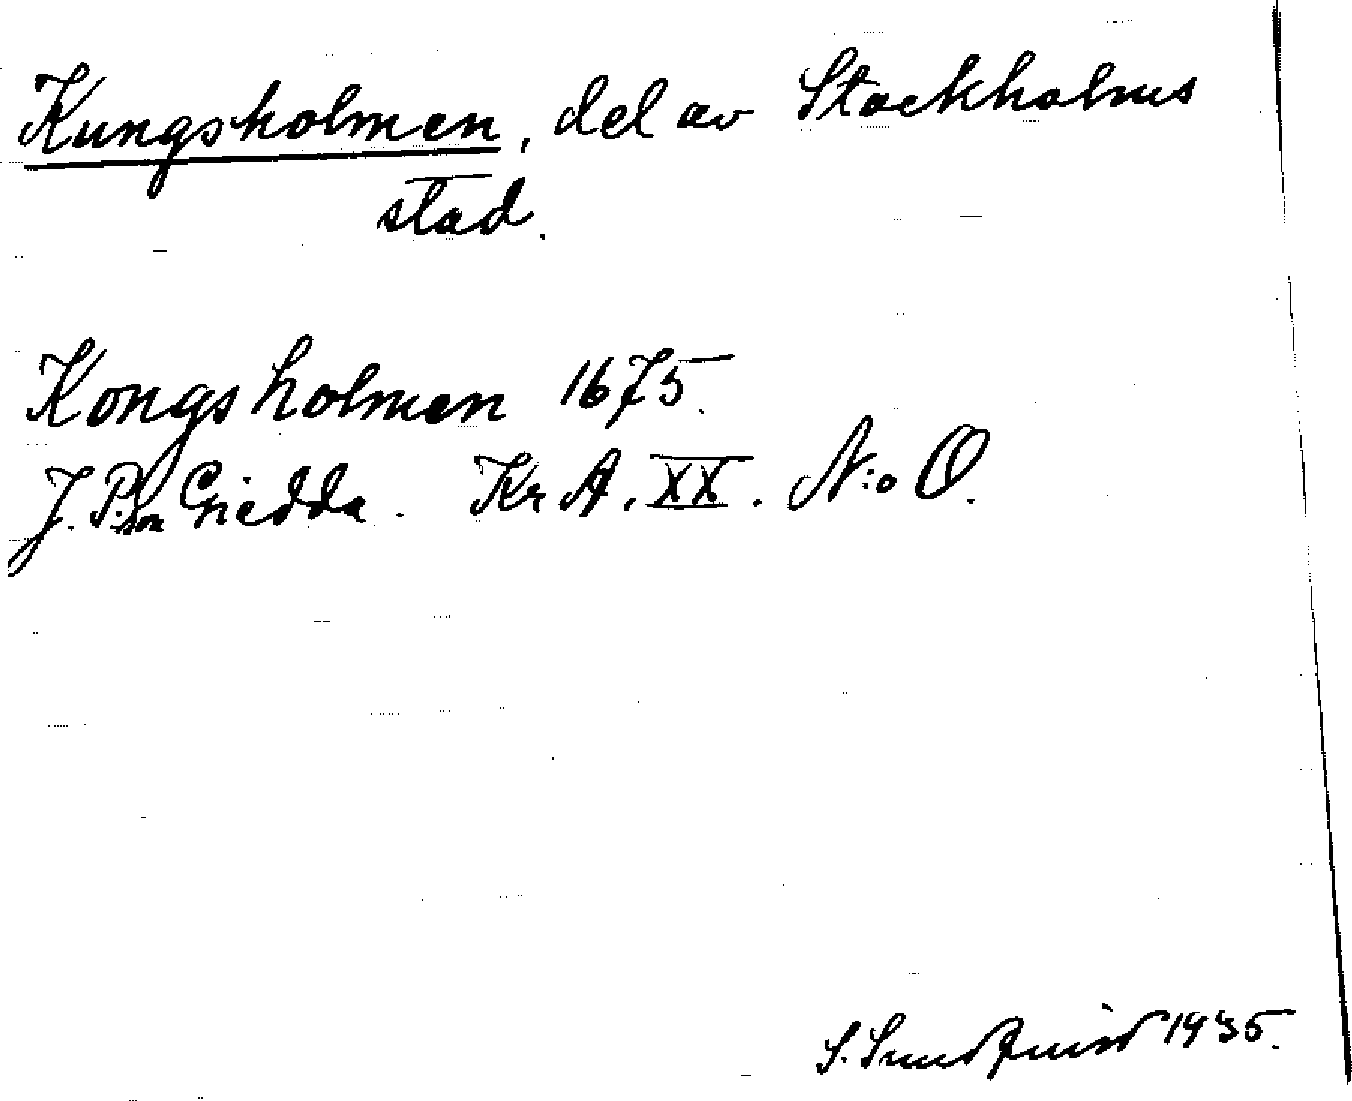 Kungsholmen, del av Stockholms
stad.
Kongsholmen 1675.
J. P:son Giedda. Kr A. XX. N:o O.
S. Sundquist 1935.